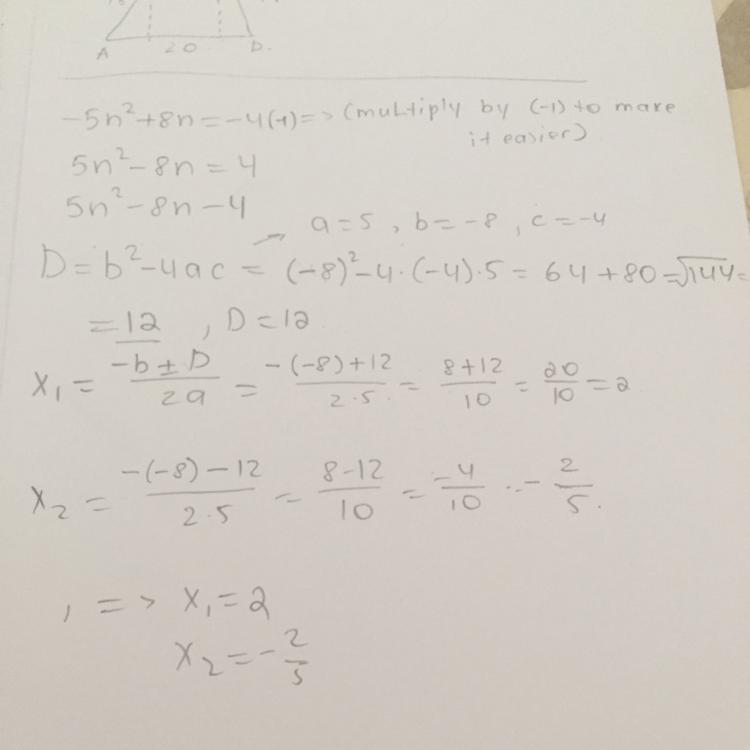 A 20 D.
-5n²+8n=-4(-1)=> (multiply by (-1) to make
it easier)
5n²-8n=4
5n²-8n-4
→ a=5, b=-8, c=-4
D=b²-4ac=(-8)²-4·(-4)·5=64+80=√144=
=12, D=12
x₁=(-b±D)/2a=(-(-8)+12)/2·5=(8+12)/10=20/10=2
x₂=(-(-8)-12)/2·5=(8-12)/10=-4/10..-2/5.
, => x₁=2
x₂=-2/5